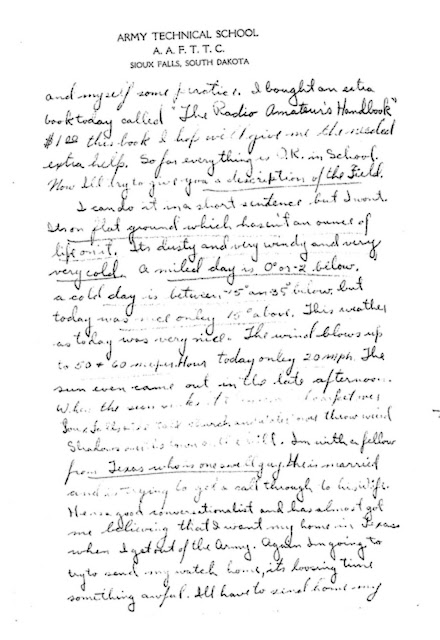 ARMY TECHNICAL SCHOOL
A. A. F. T. T. C.
SIOUX FALLS, SOUTH DAKOTA
and myself some practice. I bought an extra
book today called "The Radio Amateur's Handbook"
$1.00 this book I hope will give me the needed
extra help. So far everything is O.K. in School.
Now I'll try to give you a description of the Field.
I can do it in a short sentence but I wont.
Its on flat ground which hasn't an ounce of
life on it. Its dusty and very windy and very
very cold. A milled day is 0° or -2 bilow.
a cold day is between 25° an 35° bilow, but
today was nice onley 15° above. This weather
as today was very nice. The wind blows up
to 50 + 60 m. per. Hour today onley 20 mph. The
sun even came out in the late afternoon.
When the sun
Sioux Falls throw weird
Shadows on hill. Im with a fellow
from Texas who is one swell guy, he is married
and is trying to get a call through to his wife.
He is a good conversationalist and has almost got
me believing that I want my home in Texas
when I get out of the Army. Again Im going to
try to send my watch home, its loosing time
something awful. Ill have to send home my